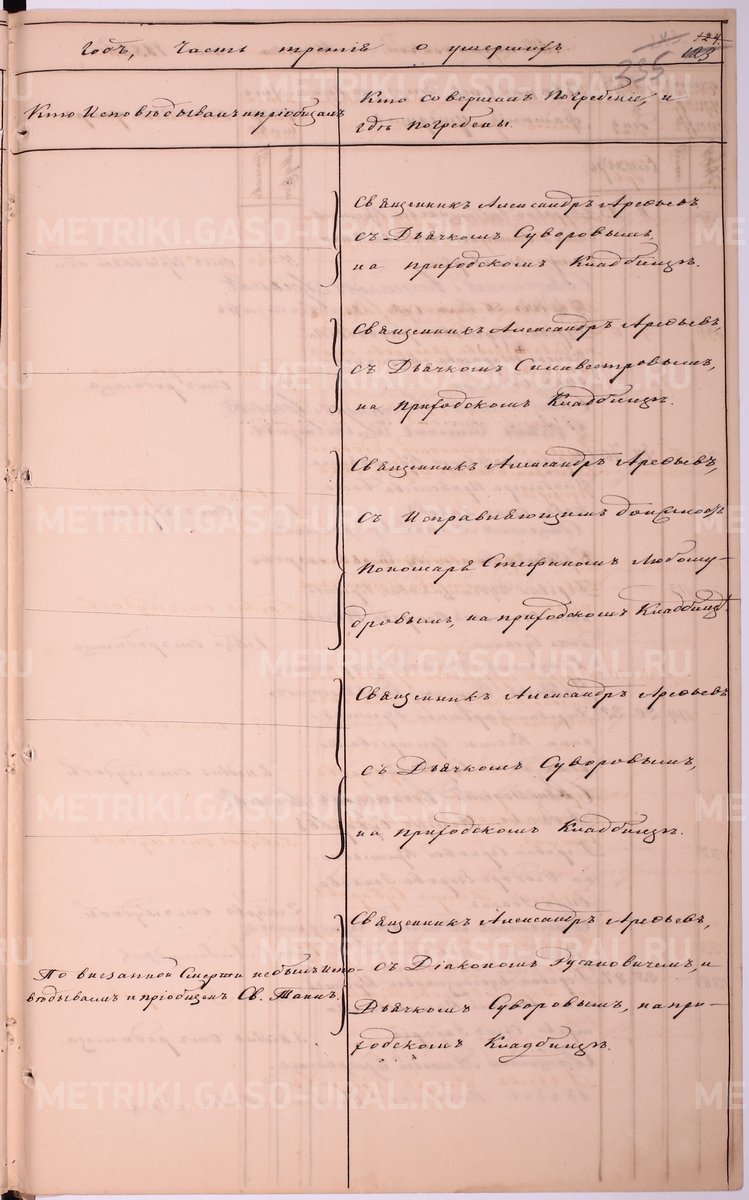 124.
123
335
годъ, Часть третія о умершихъ.
Кто Исповѣдывалъ и пріобщалъ
Кто совершалъ Погребеніе, и
гдѣ погребены.
Священникъ Александръ Арефьевъ
съ Дьячкомъ Суворовымъ,
на приходскомъ Кладбищѣ.
Священникъ Александръ Арефьевъ,
съ Дьячкомъ Силивестровымъ,
на приходскомъ Кладбищѣ.
Священникъ Александръ Арефьевъ,
съ Исправляющимъ должность
Пономаря Стефаномъ Любому-
дровымъ, на приходскомъ Кладбищѣ.
Священникъ Александръ Арефьевъ
съ Дьячкомъ Суворовымъ,
на приходскомъ Кладбищѣ.
По внезапной Смерти небылъ испо-
вѣдыванъ и пріобщенъ Св. Таинъ.
Священникъ Александръ Арефьевъ,
съ Діакономъ Русановичемъ, и
Дьячкомъ Суворовымъ, на при-
ходскомъ Кладбищѣ.
METRIKI.GASO-URAL.RU